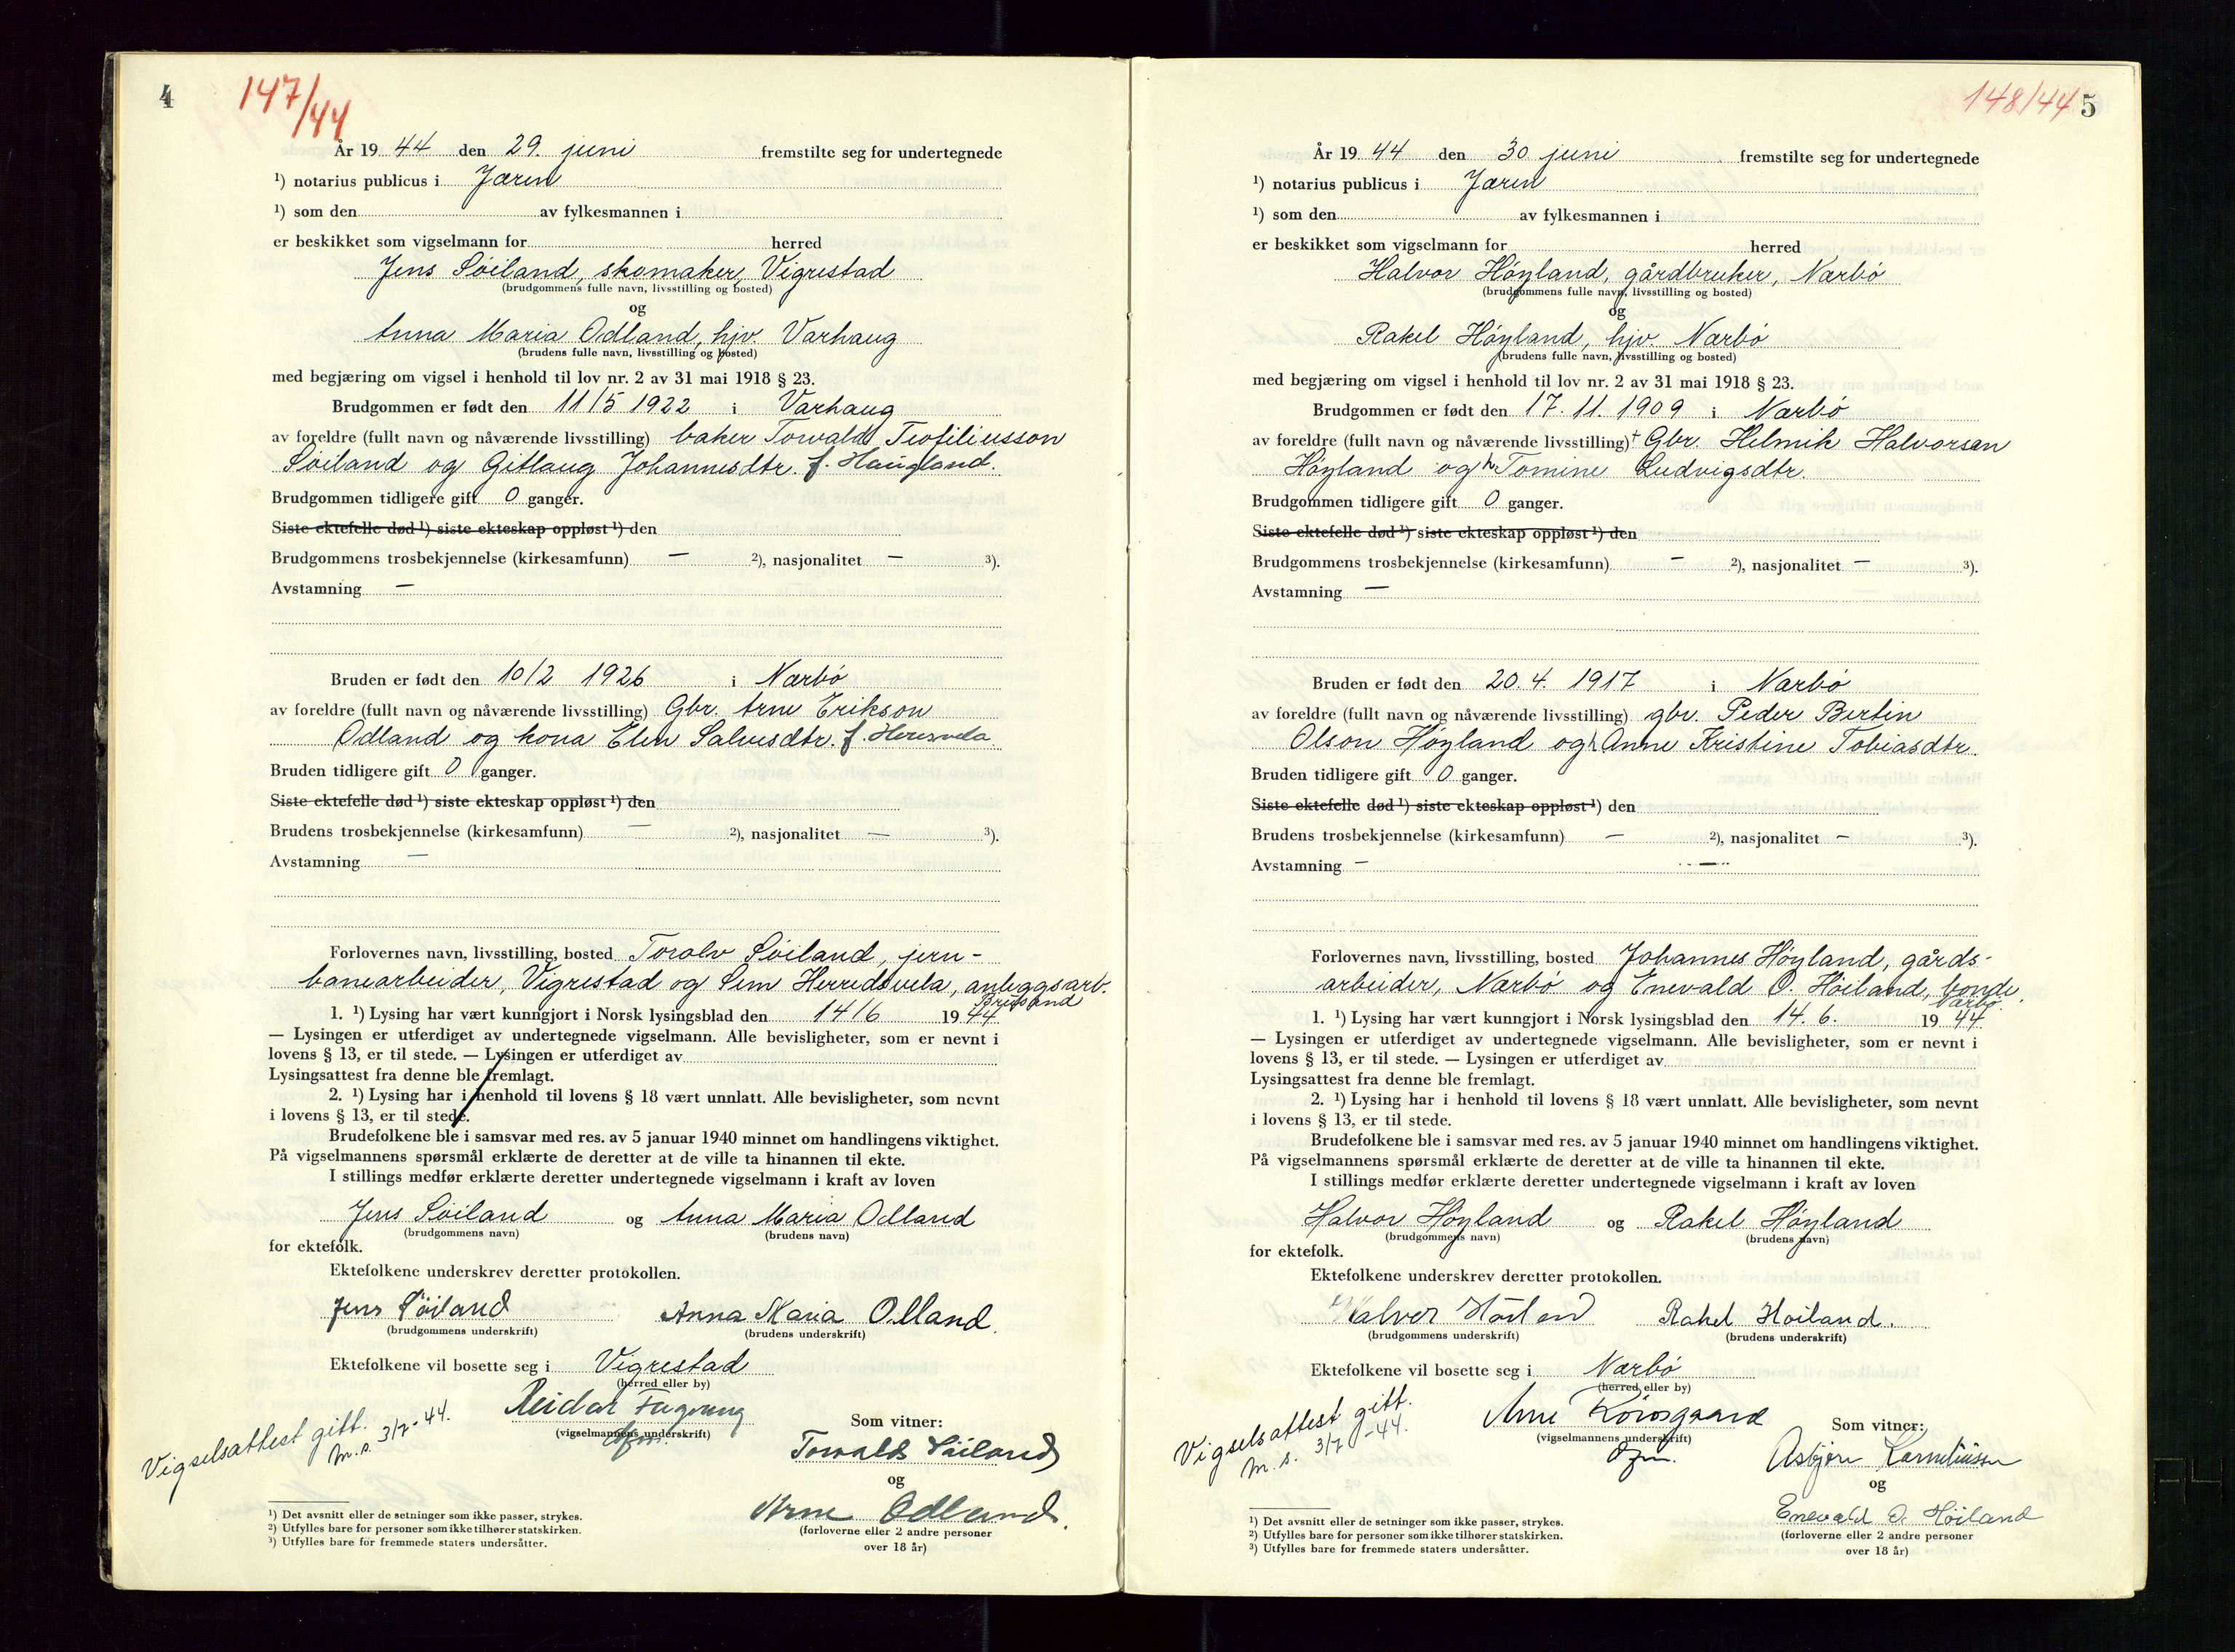 4
147/44
År 19 44 den 29. juni fremstilte seg for undertegnede
¹) notarius publicus i Jæren
¹) som den av fylkesmannen i
er beskikket som vigselmann for herred
Jens Söiland, skomaker, Vigrestad
(brudgommens fulle navn, livsstilling og bosted)
og
Anna Maria Odland, hjv. Varhaug
(brudens fulle navn, livsstilling og bosted)
med begjæring om vigsel i henhold til lov nr. 2 av 31 mai 1918 § 23.
Brudgommen er født den 11/5 1922 i Varhaug
av foreldre (fullt navn og nåværende livsstilling) baker Torvald Teofiliusson
Söiland og Gitlaug Johannesdtr. f. Haugland.
Brudgommen tidligere gift 0 ganger.
Siste ektefelle død ¹) siste ekteskap oppløst ¹) den
Brudgommens trosbekjennelse (kirkesamfunn) — ²), nasjonalitet — ³).
Avstamning —
Bruden er født den 10/2 1926 i Nærbö
av foreldre (fullt navn og nåværende livsstilling) Gbr. Arne Erikson
Odland og kona Elen Salvesdtr. f.
Bruden tidligere gift 0 ganger.
Siste ektefelle død ¹) siste ekteskap oppløst ¹) den
Brudens trosbekjennelse (kirkesamfunn) — ²), nasjonalitet — ³).
Avstamning —
Forlovernes navn, livsstilling, bosted Toralv Söiland, jern-
banearbeider, Vigrestad og Sem Herredsvela, anleggsarb.
1. ¹) Lysing har vært kunngjort i Norsk lysingsblad den 14/6 19 44
— Lysingen er utferdiget av undertegnede vigselmann. Alle bevisligheter, som er nevnt i
lovens § 13, er til stede. — Lysingen er utferdiget av
Lysingsattest fra denne ble fremlagt.
2. ¹) Lysing har i henhold til lovens § 18 vært unnlatt. Alle bevisligheter, som nevnt
i lovens § 13, er til stede.
Brudefolkene ble i samsvar med res. av 5 januar 1940 minnet om handlingens viktighet.
På vigselmannens spørsmål erklærte de deretter at de ville ta hinannen til ekte.
I stillings medfør erklærte deretter undertegnede vigselmann i kraft av loven
Jens Söiland og Anna Maria Odland
(brudgommens navn) (brudens navn)
for ektefolk.
Ektefolkene underskrev deretter protokollen.
Jens Söiland Anna Maria Odland.
(brudgommens underskrift) (brudens underskrift)
Ektefolkene vil bosette seg i Vigrestad
(herred eller by)
Reidar
(vigselmannens underskrift)
Som vitner:
Torvald Söiland
og
Arne Odland.
(forloverne eller 2 andre personer
over 18 år)
Vigselsattest gitt.
m.s. 3/7-44.
¹) Det avsnitt eller de setninger som ikke passer, strykes.
²) Utfylles bare for personer som ikke tilhører statskirken.
³) Utfylles bare for fremmede staters undersåtter.
148/44 5
År 19 44 den 30 juni fremstilte seg for undertegnede
¹) notarius publicus i Jæren
¹) som den av fylkesmannen i
er beskikket som vigselmann for herred
Halvor Höyland, gårdbruker, Nærbö
(brudgommens fulle navn, livsstilling og bosted)
og
Rakel Höyland, hjv. Nærbö
(brudens fulle navn, livsstilling og bosted)
med begjæring om vigsel i henhold til lov nr. 2 av 31 mai 1918 § 23.
Brudgommen er født den 17.11.1909 i Nærbö
av foreldre (fullt navn og nåværende livsstilling) † Gbr. Helmik Halvorsen
Höyland og h. Tomine Ludvigsdtr.
Brudgommen tidligere gift 0 ganger.
Siste ektefelle død ¹) siste ekteskap oppløst ¹) den
Brudgommens trosbekjennelse (kirkesamfunn) — ²), nasjonalitet — ³).
Avstamning —
Bruden er født den 20.4. 1917 i Nærbö
av foreldre (fullt navn og nåværende livsstilling) gbr. Peder Bertin
Olson Höyland og h. Anne Kristine Tobiasdtr.
Bruden tidligere gift 0 ganger.
Siste ektefelle død ¹) siste ekteskap oppløst ¹) den
Brudens trosbekjennelse (kirkesamfunn) — ²), nasjonalitet — ³).
Avstamning — —
Forlovernes navn, livsstilling, bosted Johannes Höyland, gårds-
arbeider, Nærbö og Enevald O. Höiland, bonde,
Nærbö
1. ¹) Lysing har vært kunngjort i Norsk lysingsblad den 14. 6. 19 44
— Lysingen er utferdiget av undertegnede vigselmann. Alle bevisligheter, som er nevnt i
lovens § 13, er til stede. — Lysingen er utferdiget av
Lysingsattest fra denne ble fremlagt.
2. ¹) Lysing har i henhold til lovens § 18 vært unnlatt. Alle bevisligheter, som nevnt
i lovens § 13, er til stede.
Brudefolkene ble i samsvar med res. av 5 januar 1940 minnet om handlingens viktighet.
På vigselmannens spørsmål erklærte de deretter at de ville ta hinannen til ekte.
I stillings medfør erklærte deretter undertegnede vigselmann i kraft av loven
Halvor Höyland og Rakel Höyland
(brudgommens navn) (brudens navn)
for ektefolk.
Ektefolkene underskrev deretter protokollen.
Halvor Rakel Höiland.
(brudgommens underskrift) (brudens underskrift)
Ektefolkene vil bosette seg i Nærbö
(herred eller by)
Arne
(vigselmannens underskrift)
Som vitner:
Asbjörn Korneliussen
og
Enevald O. Höiland
(forloverne eller 2 andre personer
over 18 år)
Vigselsattest gitt.
m.s. 3/7-44.
¹) Det avsnitt eller de setninger som ikke passer, strykes.
²) Utfylles bare for personer som ikke tilhører statskirken.
³) Utfylles bare for fremmede staters undersåtter.